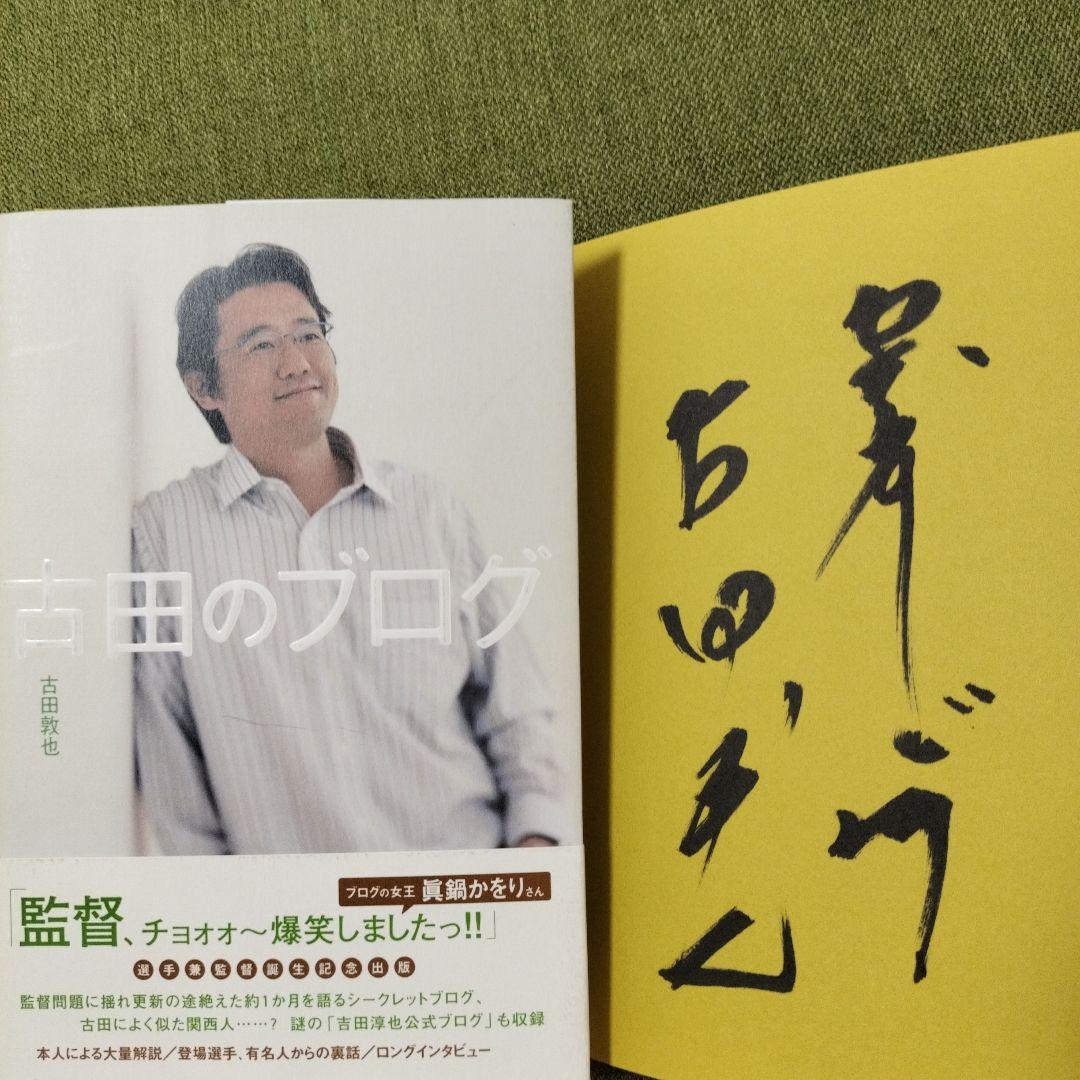 古田のブログ
古田敦也
ブログの女王 眞鍋かをりさん
「監督、チョォォ〜爆笑しましたっ!!」
選手兼監督誕生記念出版
監督問題に揺れ更新の途絶えた約1か月を語るシークレットブログ、
古田によく似た関西人……? 謎の「吉田淳也公式ブログ」も収録
本人による大量解説/登場選手、有名人からの裏話/ロングインタビュー
古田